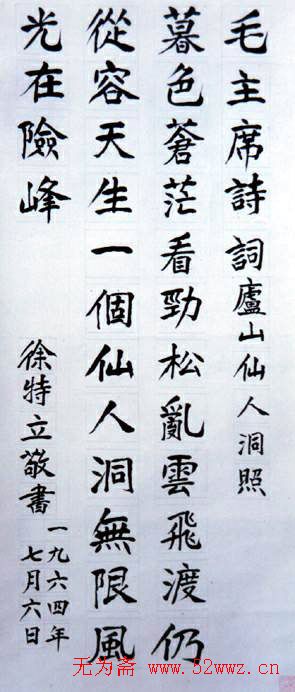 毛主席詩詞廬山仙人洞照
暮色蒼茫看勁松亂雲飛渡仍
從容天生一個仙人洞無限風
光在險峰
徐特立敬書
一九六四年
七月六日
无为斋 www.52wwz.cn